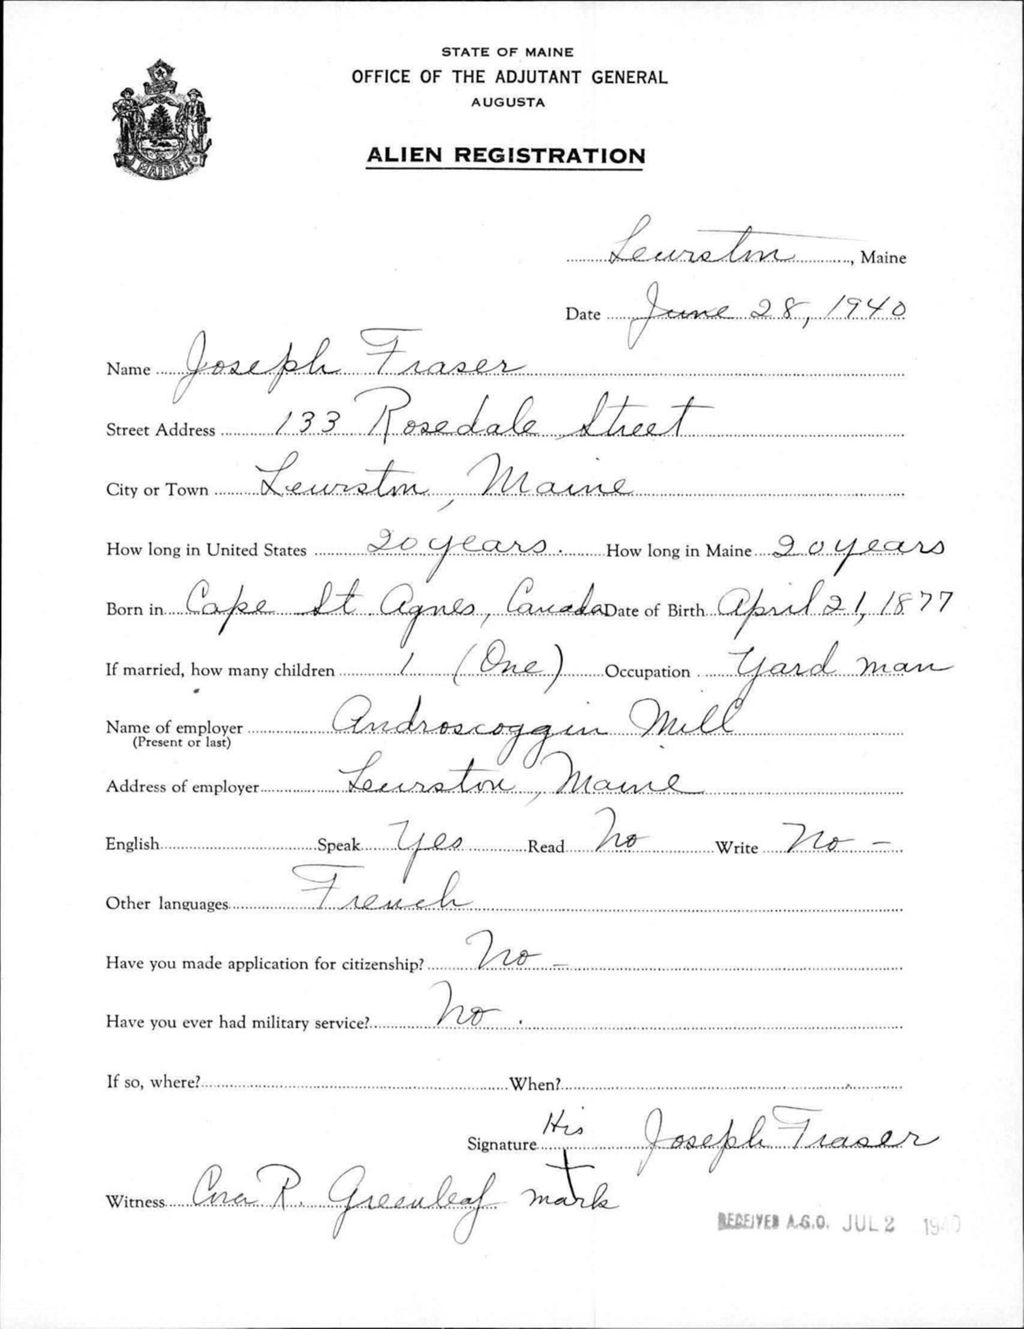 STATE OF MAINE
OFFICE OF THE ADJUTANT GENERAL
AUGUSTA
ALIEN REGISTRATION
MAINE
Lewiston, Maine
Date June 28, 1940
Name Joseph Fraser
Street Address 133 Rosedale Street
City or Town Lewiston, Maine
How long in United States 20 years. How long in Maine 20 years
Born in Cape St Agnes, Canada Date of Birth April 21, 1877
If married, how many children 1 (One) Occupation Yard man
Name of employer Androscoggin Mill
(Present or last)
Address of employer Lewiston, Maine
English Speak Yes Read No Write No -
Other languages French
Have you made application for citizenship? No -
Have you ever had military service? No.
If so, where? When?
Signature His Joseph Fraser
Witness Cora R. Greenleaf mark
RECEIVED A.G.O. JUL 2 1940